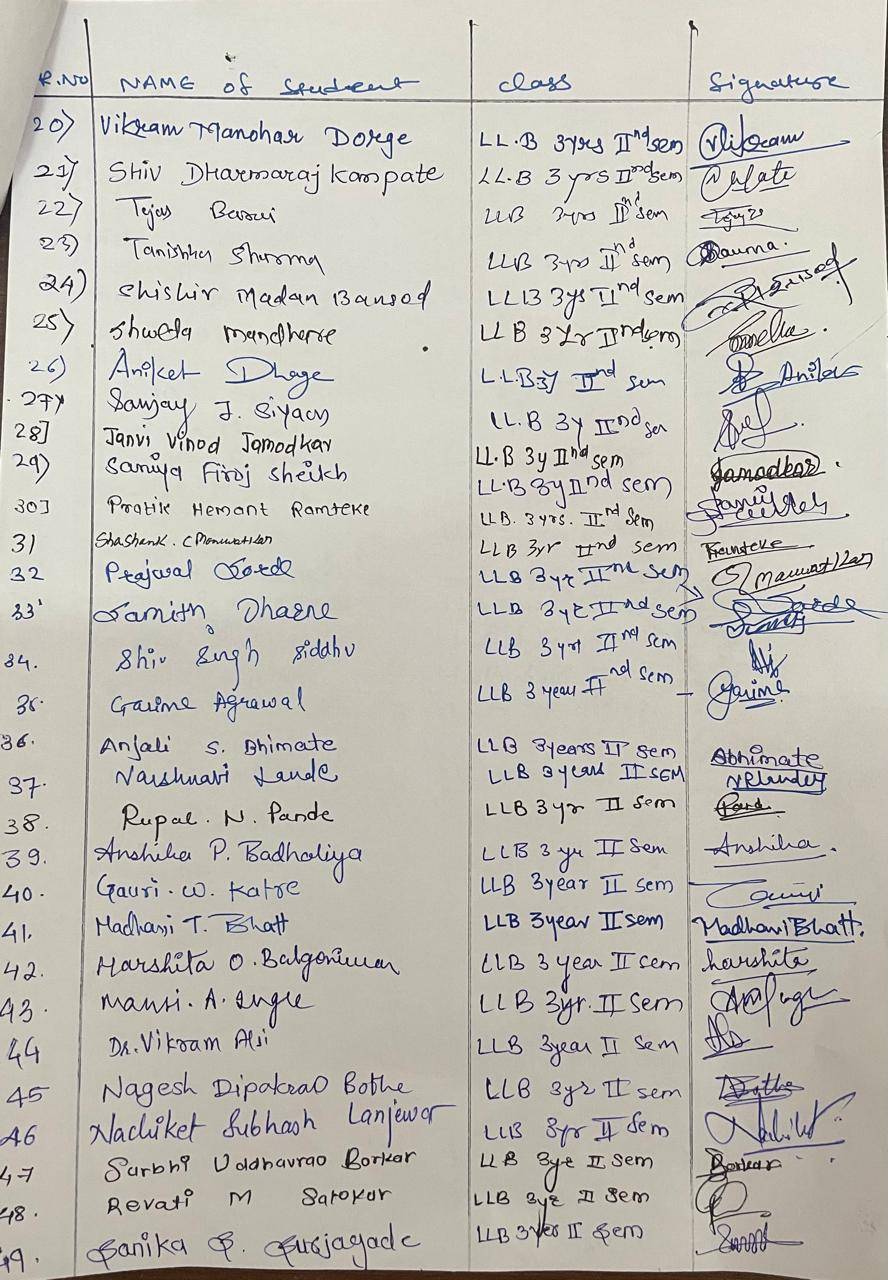 R.NO NAME of Student Class Signature
20) Vikram Manohar Dorge LL.B 3yrs IInd sem Vikram
21) Shiv Dharmaraj Kampate LL.B 3 yrs IInd sem
22) Tejas LLB 3yrs IInd sem
23) Tanishka Sharma LLB 3yrs IInd sem
24) Shishir Madan Bansod LLB 3ys IInd sem Bansod
25) Shweta Mandhere LL B 3 Yr IInd sem
26) Aniket Dhage L.L.B 3y IInd sem Aniket
27) Sanjay J. LL.B 3y IInd
28] Janvi Vinod Jamodkar LL.B 3y IInd sem Jamodkar
29) Saniya Firoj Sheikh LL.B 3y IInd sem
30] Pratik Hemant Ramteke LL.B. 3yrs. IInd Sem Ramteke
31 Shashank. C LLB 3yr IInd sem
32 Prajwal LLB 3yr IInd sem
33 Dharne LLB 3yr IInd sem
34. Shiv Singh Siddhu LLB 3yr IInd sem
35. Garima Agrawal LLB 3 year IInd sem Garima
36. Anjali S. Bhimate LLB 3years II sem Abhimate
37. Vaishnavi Lande LLB 3years II SEM VRLandey
38. Rupal. N. Pande LLB 3 yr II Sem
39. Anshika P. Badhaliya LLB 3 yr II Sem Anshika.
40. Gauri. W. Katre LLB 3year II sem Gauri
41. Madhavi T. Bhatt LLB 3year II sem Madhavi Bhatt.
42. Harshita O. LLB 3 year II sem harshita
43. Mansi. A. Ingle LLB 3yr. II Sem
44 Dr. Vikram Alsi LLB 3year II Sem
45 Nagesh Dipakrao Bothe LLB 3yr II sem Bothe
46 Nachiket Subhash Lanjewar LLB 3yr II Sem Nachiket
47 Surbhi Uddhavrao Borkar LLB 3ye II Sem Borkar
48. Revati M Sarokar LLB 3ye II Sem
49. Sanika S. Surjagade LLB 3yer II Sem